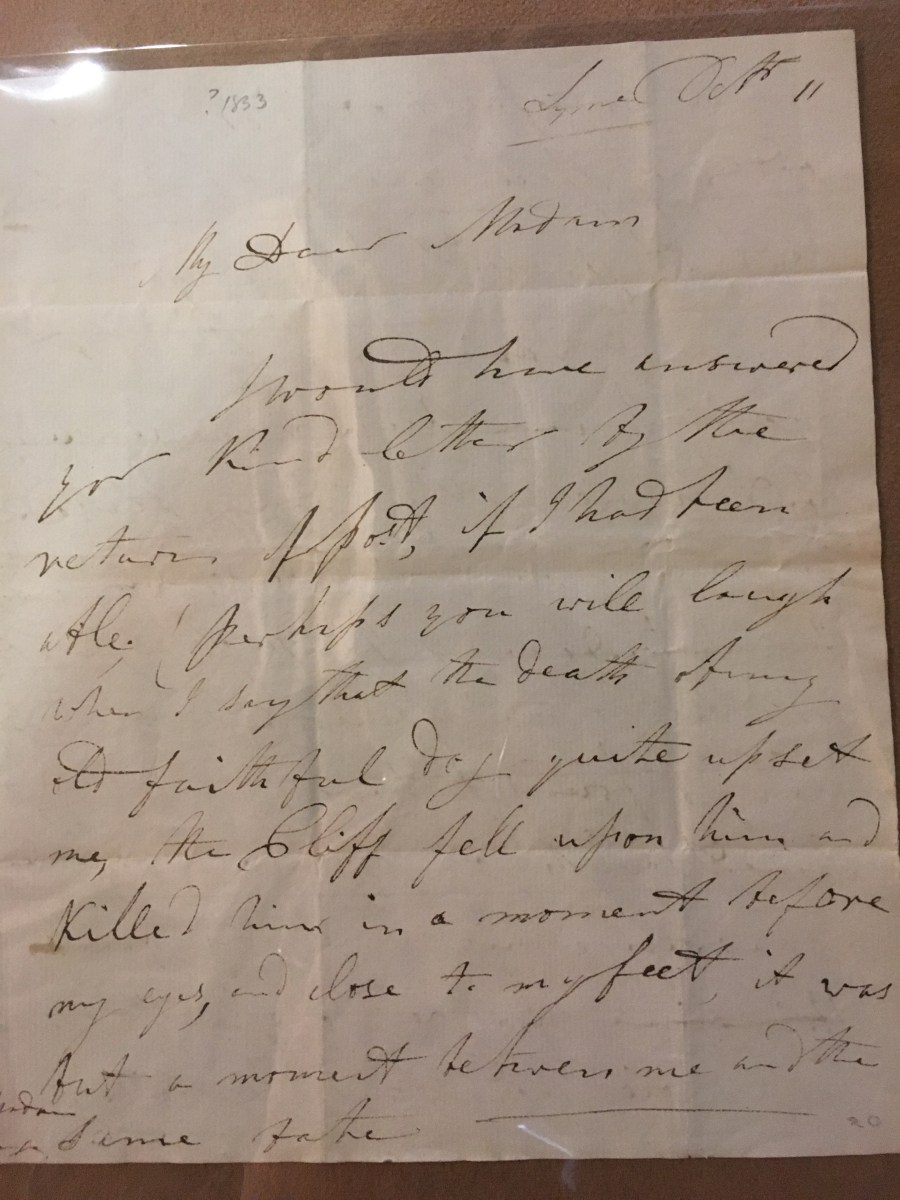 ? 1833
Lyme Octr 11
My Dear Madam
I would have answered
your Kind letter by the
return of post, if I had been
able. Perhaps you will laugh
when I say that the death of my
old faithful dog quite upset
me, the Cliff fell upon him and
Killed him in a moment before
my eyes, and close to my feet, it was
but a moment between me and the
same fate
20